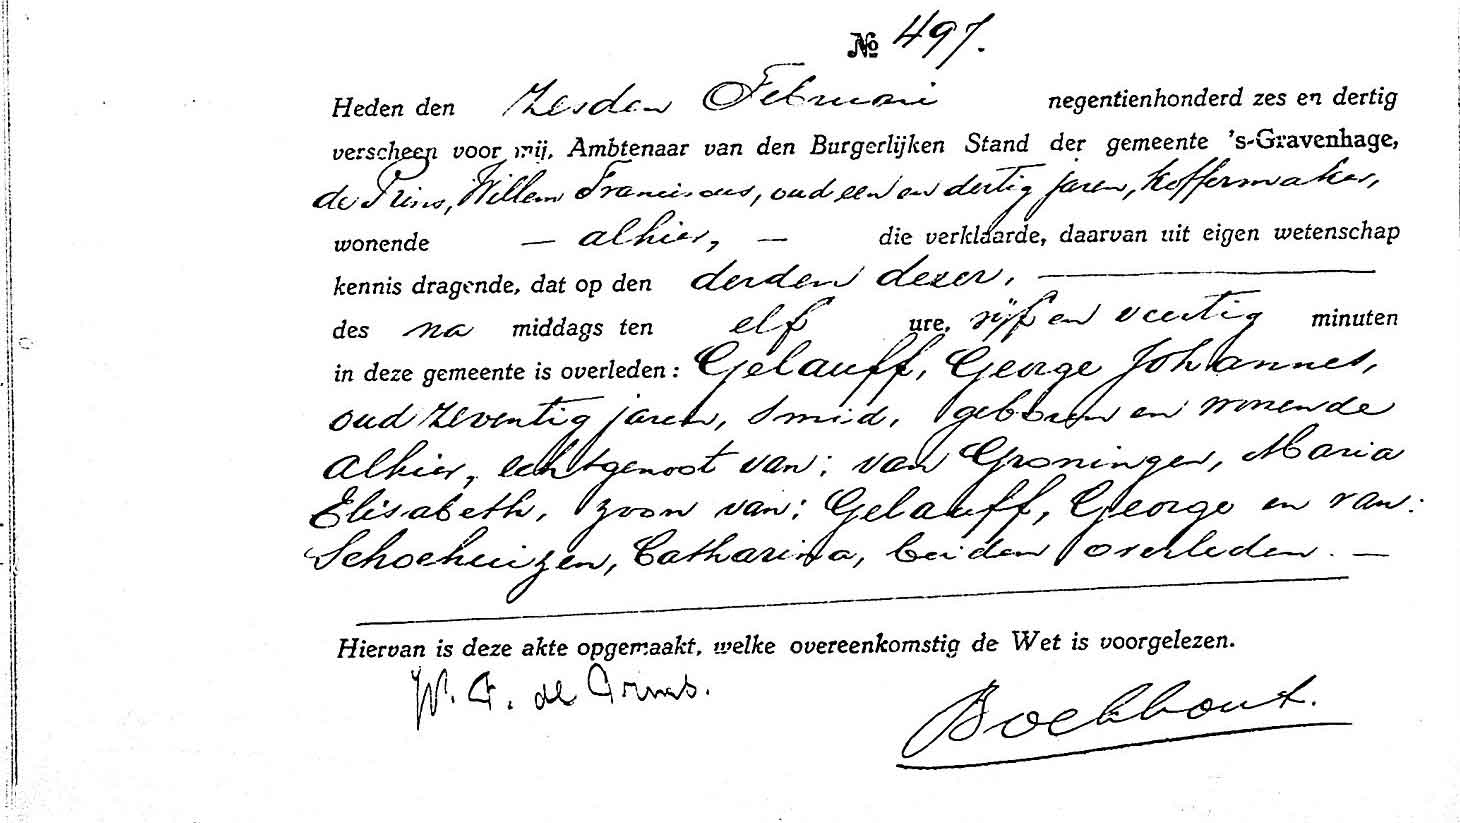 № 497.
Heden den zesden Februari negentienhonderd zes en dertig
verscheen voor mij, Ambtenaar van den Burgerlijken Stand der gemeente 's-Gravenhage,
de Prins, Willem Franciscus, oud een en dertig jaren, koffermaker,
wonende — alhier, — die verklaarde, daarvan uit eigen wetenschap
kennis dragende, dat op den derden dezer, —
des na middags ten elf ure, vijf en veertig minuten
in deze gemeente is overleden: Gelauff, George Johannes,
oud zeventig jaren, smid, geboren en wonende
alhier, echtgenoot van: van Groningen, Maria
Elisabeth, zoon van: Gelauff, George en van:
Schoehuizen, Catharina, beiden overleden. —
Hiervan is deze akte opgemaakt, welke overeenkomstig de Wet is voorgelezen.
W. F. de Prins. Boekhout.